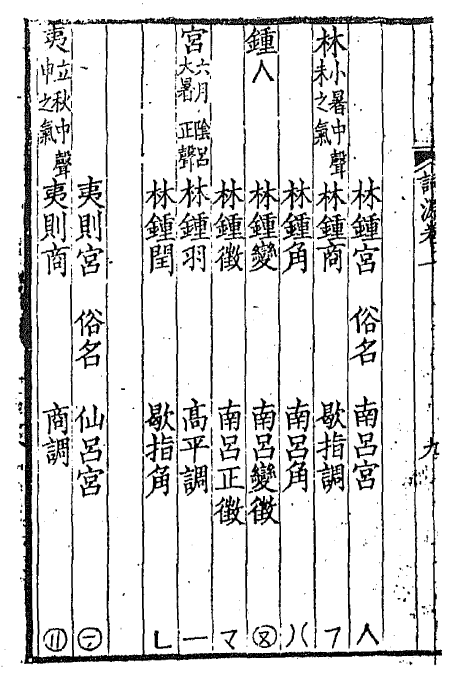 詞源卷一 九
林鍾宮 俗名 南呂宮 人
林 小暑中聲 未之氣 林鍾商 歇指調 フ
林鍾角 南呂角 八
鍾 人 林鍾變 南呂變徵
林鍾徵 南呂正徵 マ
宮 六月 陰呂 大暑 正聲 林鍾羽 高平調 一
林鍾閏 歇指角 ㄴ
夷則宮 俗名 仙呂宮
夷 立秋中聲 申之氣 夷則商 商調